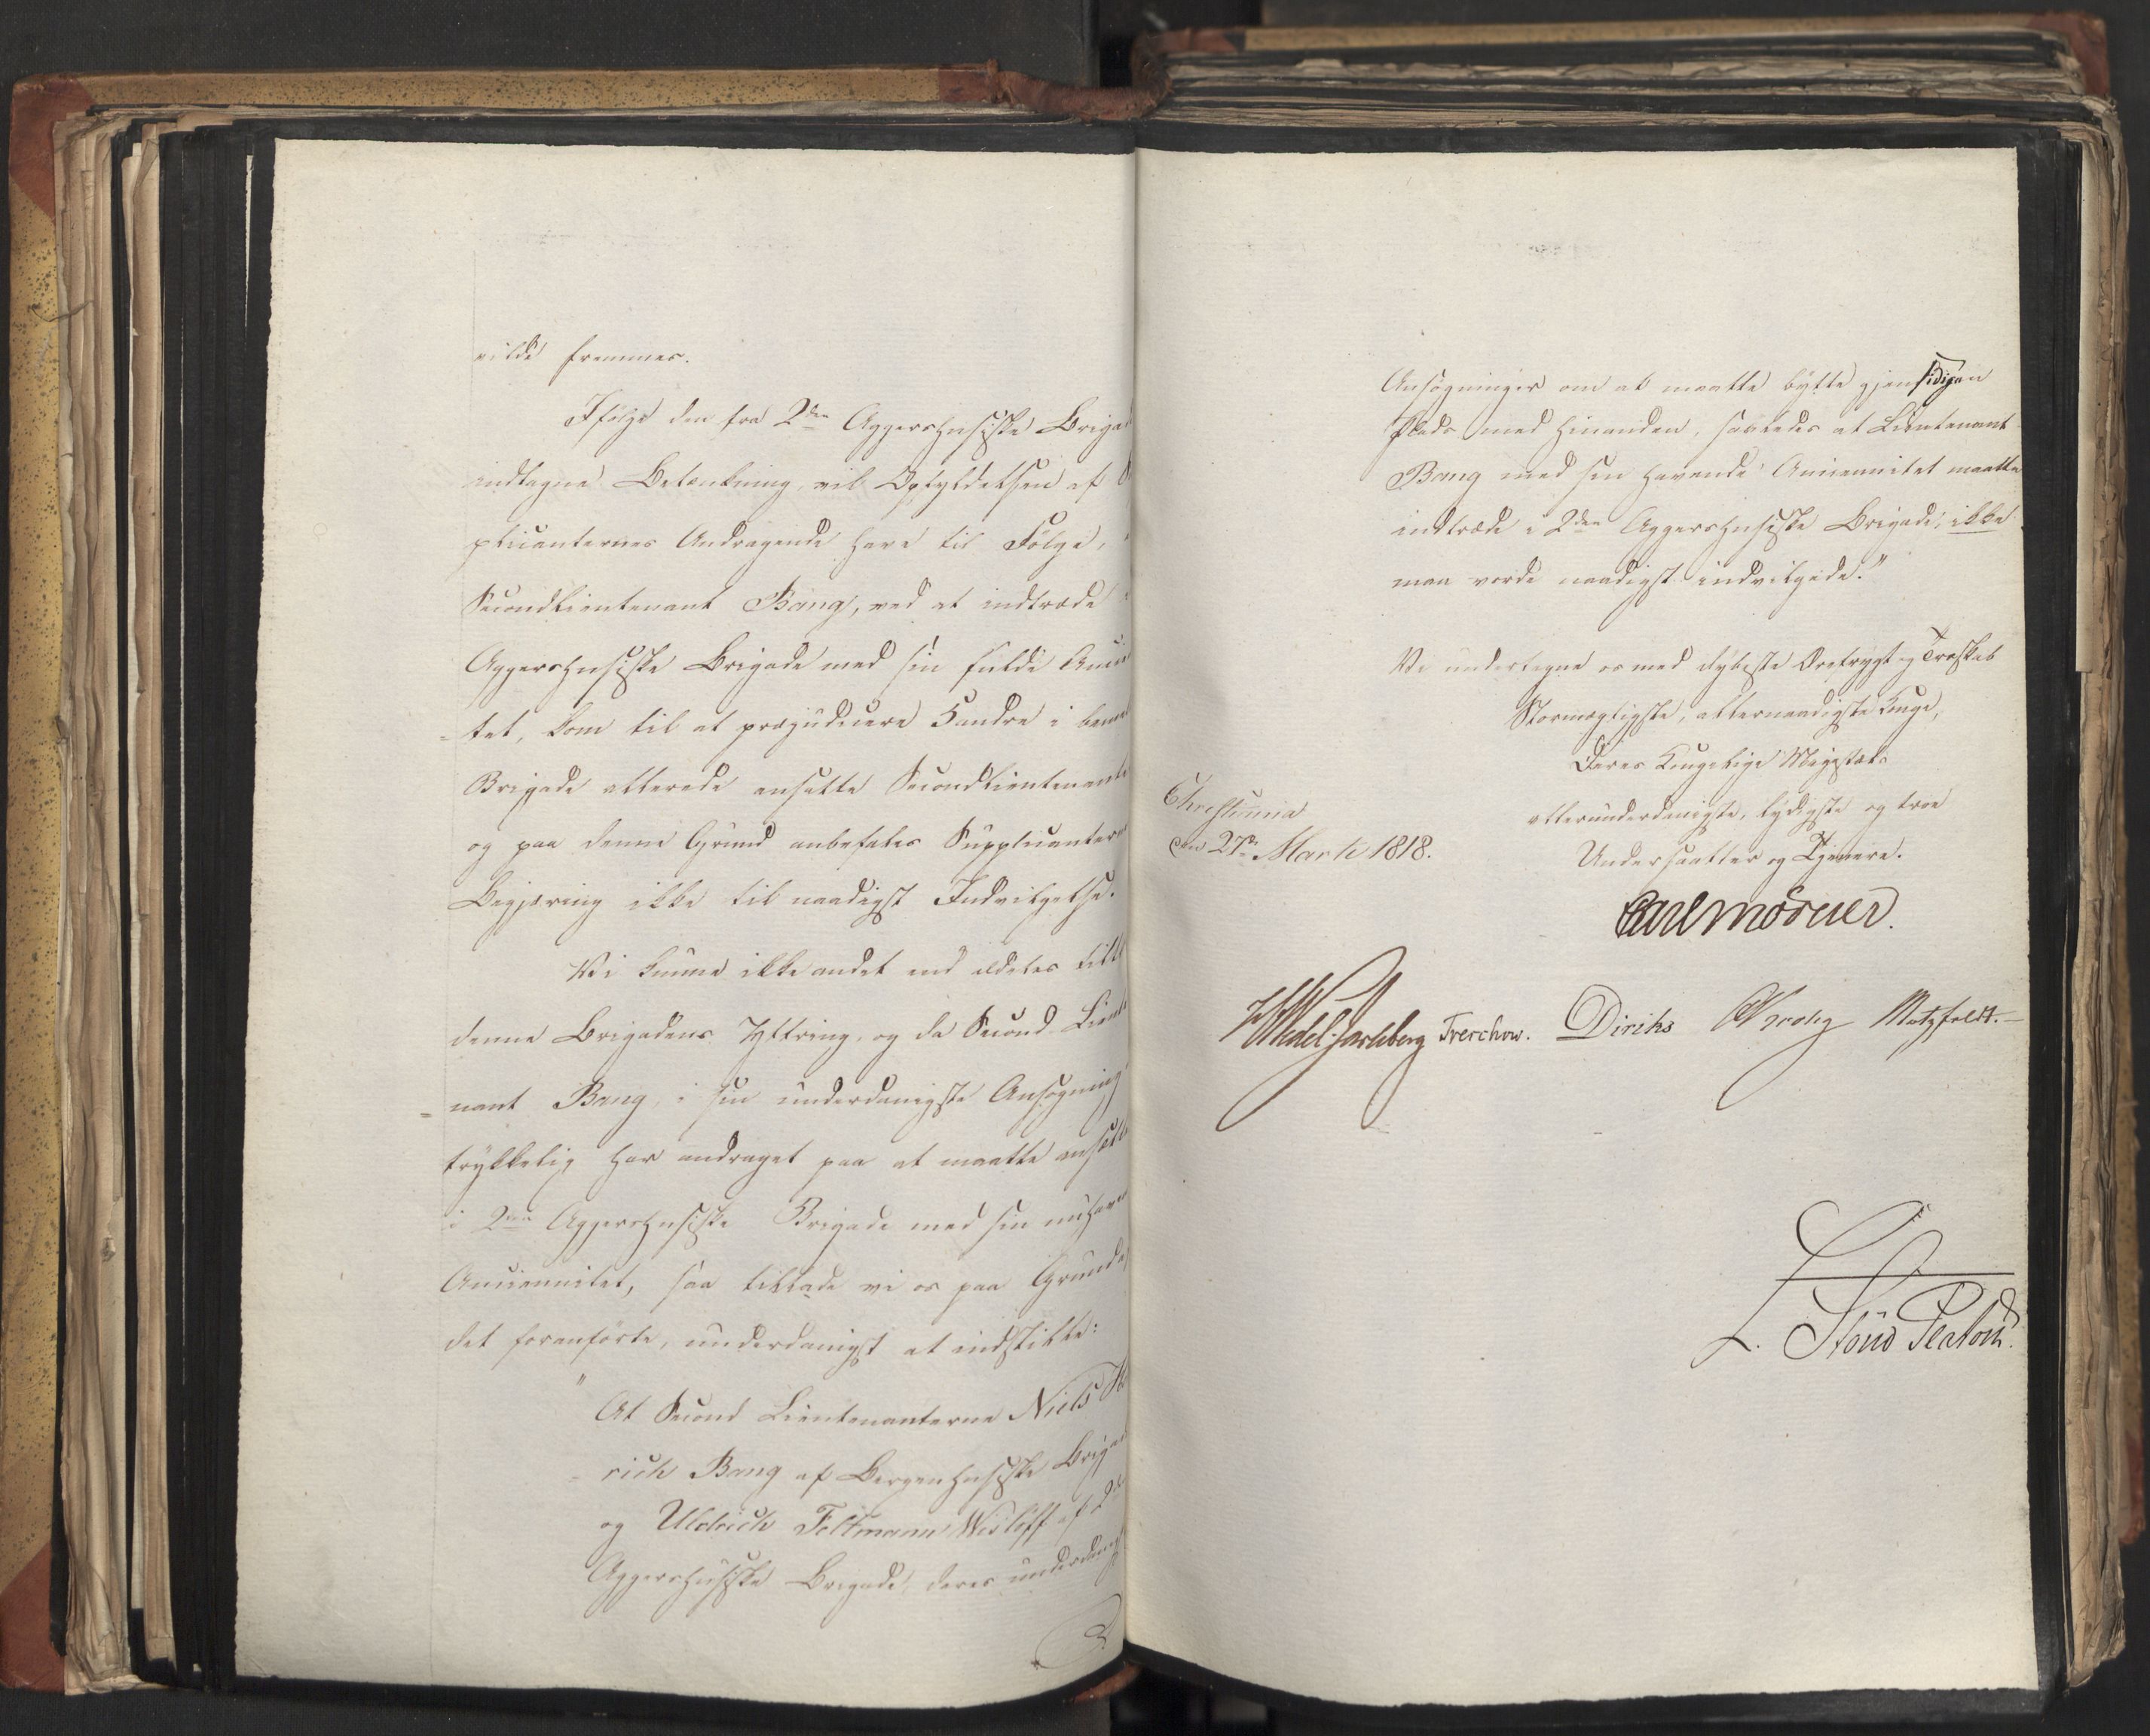 vilde fremmes.
Ifølge den fra 2den Aggershusiske Brigade
indtagne Betænkning vil Opfyldelsen af
plicanternes Andragende have til Følge,
Secondlieutenant Bang, ved at indtræde
Aggershusiske Brigade med sin fulde Ancie
-tet, kom til at præjudicere 5 andre i benæ
Brigade allerede ansatte Secondlieutenante
og paa denne Grund anbefales Supplicanter
Begjæring ikke til naadigst Indvilgelse.
Vi kunne ikke andet end aldeles till
denne Brigadens Yttring, og da Second Lieut
-nant Bang, i sin underdanigste Ansøgning
trykkelig har andraget paa at maatte ansætt
i 2den Aggershusiske Brigade med sin nuhave
Anciennitet, saa tillade vi os paa Grund
det foranførte, underdanigst at indstille:
"At Second Lieutenanterne Niels
-rich Bang af Bergenhusiske Briga
og Uldrich Feltmann Wisløff af 2den
Aggershusiske Brigade, deres underdanigst
Ansøgninger om at maatte bytte gjensidigen
Plads med hinanden, saaledes at Lieutenant
Bang med sin havende Anciennitet maatte
indtræde i 2den Aggershusiske Brigade, ikke
maa vorde naadigst indvilgede."
Vi undertegne os med dybeste Ærefrygt og Troskab
Stormægtigste, allernaadigste Konge,
Deres Kongelige Majestæts
allerunderdanigste, lydigste og troe
Undersaatter og Tjenere.
Christiania
den 27de Marti 1818.
Carl Mörner.
HWedel Jarlsberg Treschow. Diriks CKrohg Motzfeldt.
L. Stoud Platou